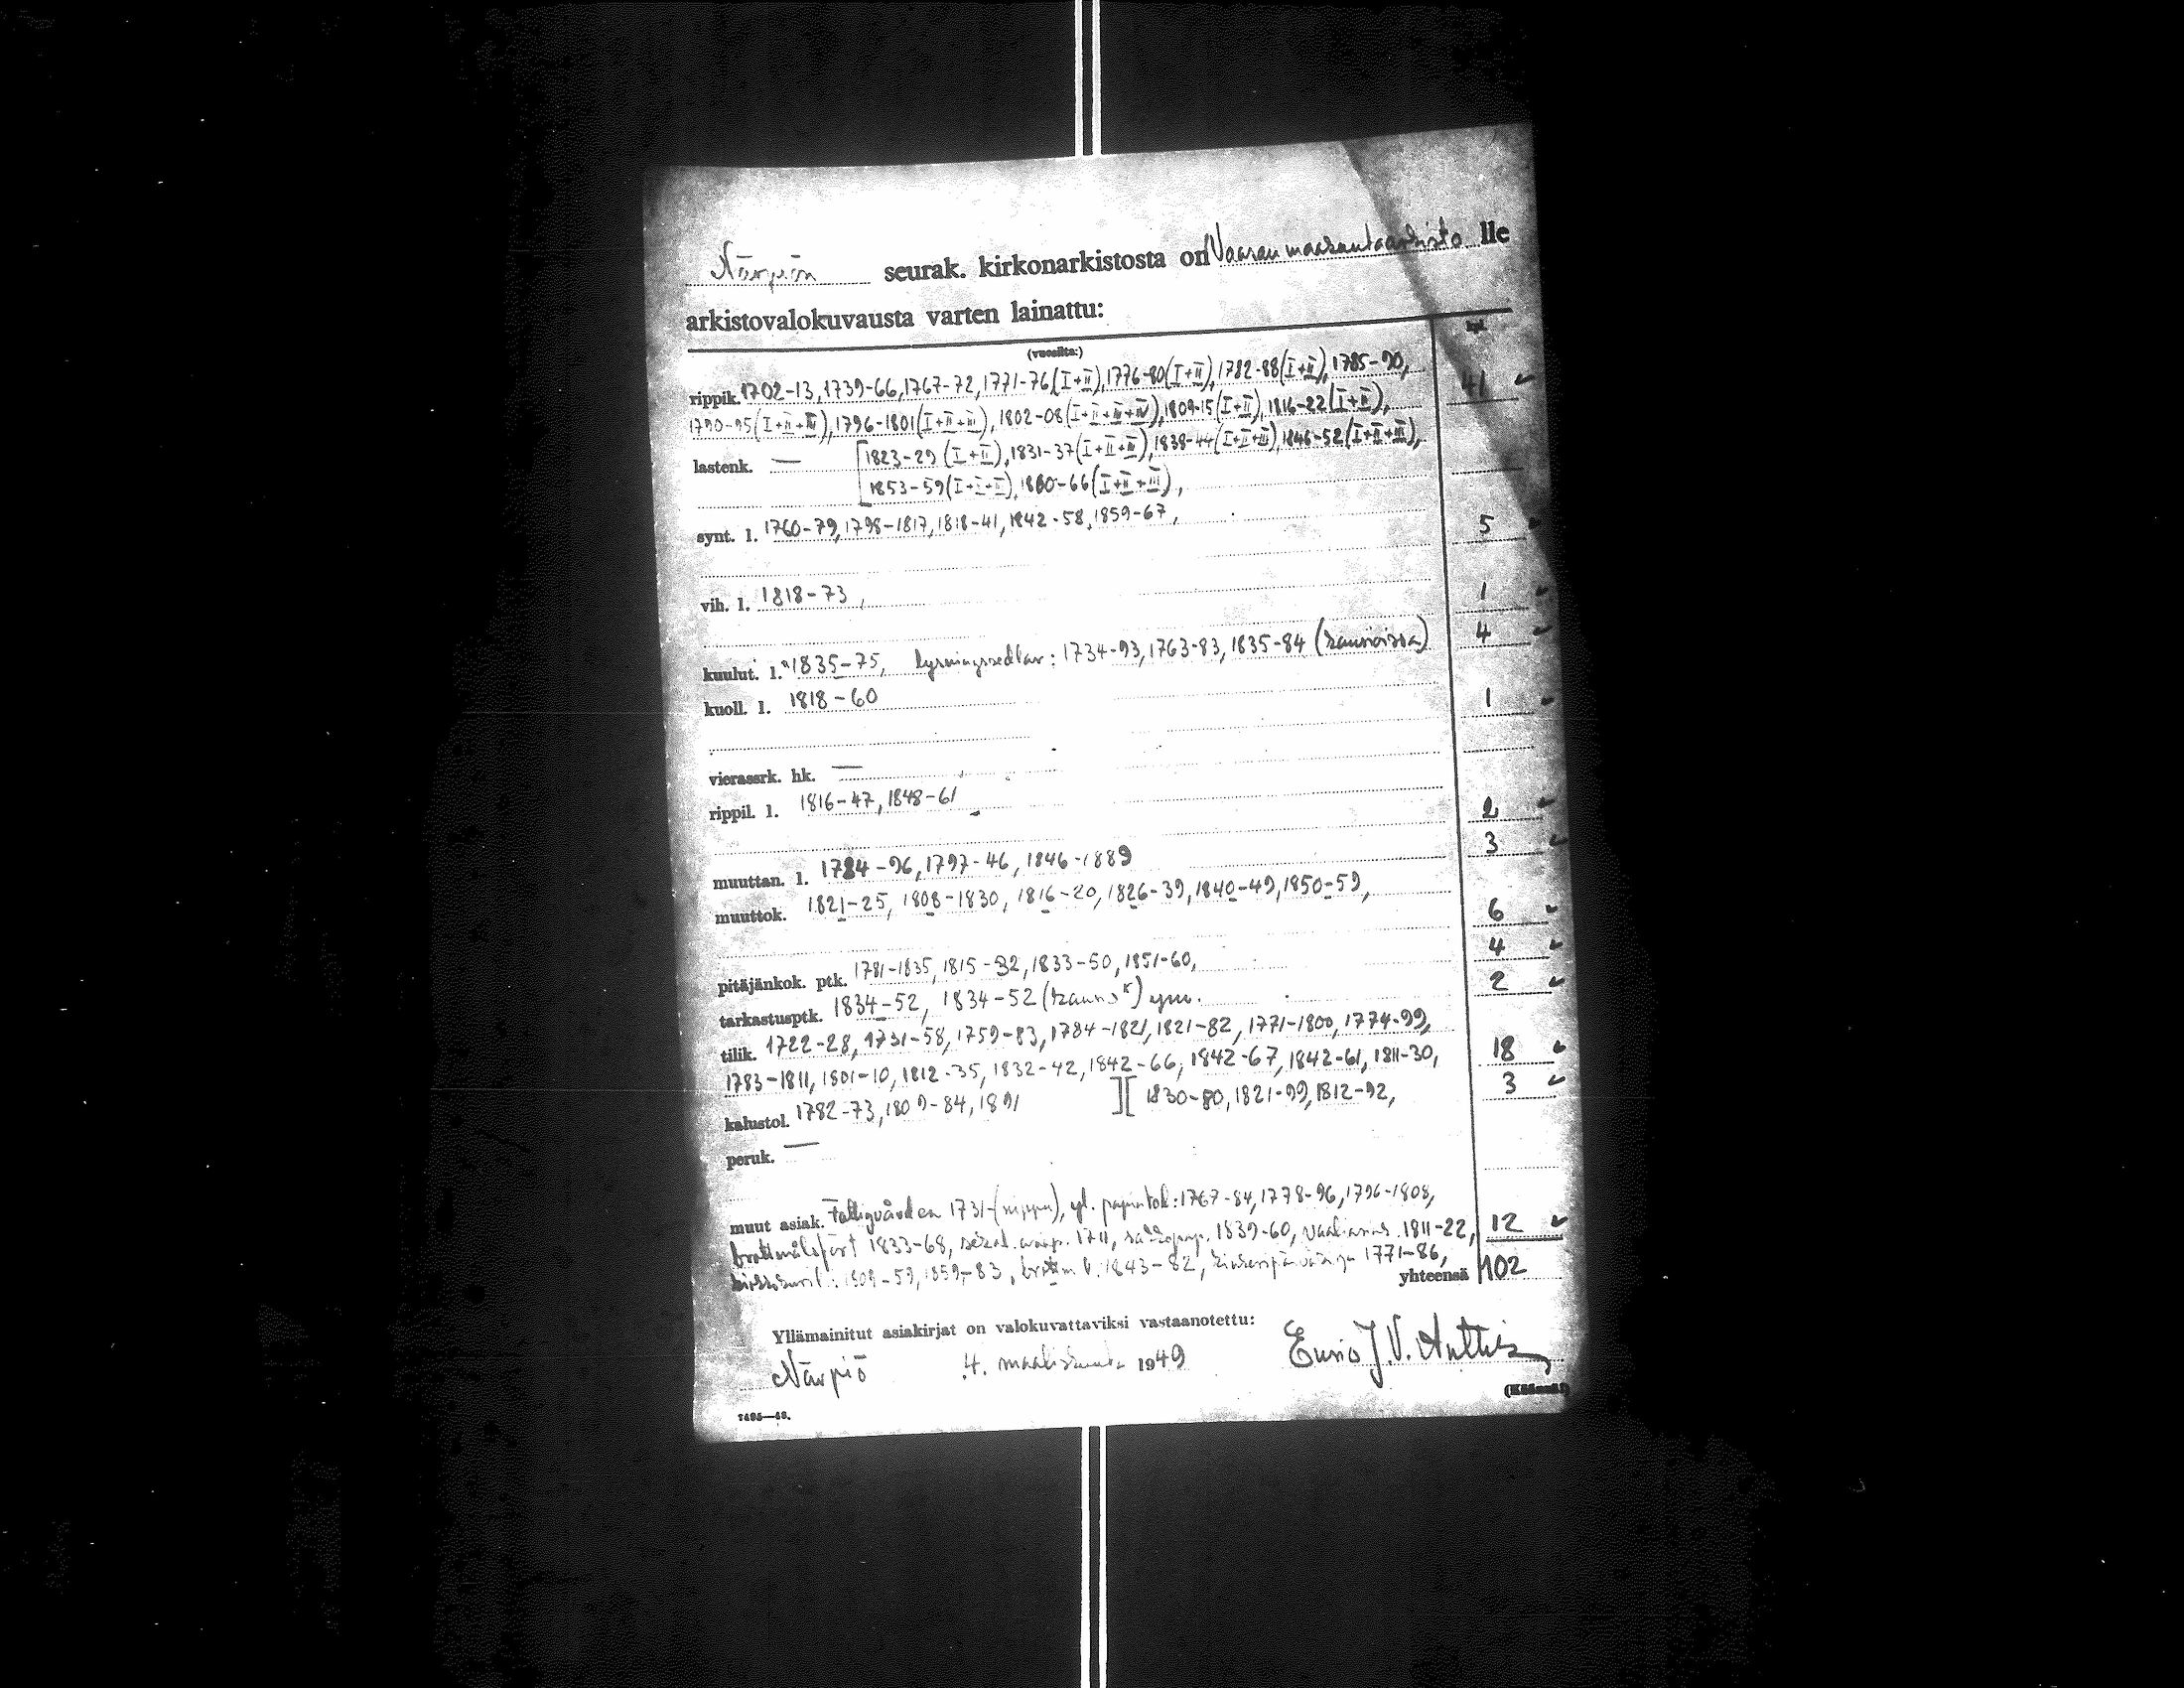 Närpiön seurak. kirkonarkistosta on Vaasan maakuntaarkisto lle
arkistovalokuvausta varten lainattu:
(vuosilta:) kpl
rippik. 1702-13, 1739-66, 1767-72, 1771-76 (I+II), 1776-80 (I+II), 1782-88 (I+II), 1785-90, 41
1790-95 (I+II+III), 1796-1801 (I+II+III), 1802-08 (I+II+III+IV), 1809-15 (I+II), 1816-22 (I+II),
lastenk. — [1823-29 (I+II), 1831-37 (I+II+III), 1838-44 (I+II+III), 1846-52 (I+II+III),
1853-59 (I+I+I), 1860-66 (I+II+III),
synt. l. 1760-79, 1798-1817, 1818-41, 1842-58, 1859-67, 5
vih. l. 1818-73, 1
kuulut. l. 1835-75, lysningssedlar: 1734-93, 1763-83, 1835-84 (kansioissa) 4
kuoll. l. 1818-60 1
vierassrk. hk. —
rippil. l. 1816-47, 1848-61 2
muuttan. l. 1784-96, 1797-46, 1846-1889 3
muuttok. 1821-25, 1808-1830, 1816-20, 1826-39, 1840-49, 1850-59, 6
pitäjänkok. ptk. 1781-1835, 1815-32, 1833-50, 1851-60, 4
tarkastusptk. 1834-52, 1834-52 ym. 2
tilik. 1722-28, 1731-58, 1759-83, 1784-1821, 1821-82, 1771-1800, 1774-99,
1783-1811, 1801-10, 1812-35, 1832-42, 1842-66, 1842-67, 1842-61, 1811-30, 18
kalustol. 1782-73, 1809-84, 1891 ][ 1830-80, 1821-99, 1812-92, 3
peruk. —
muut asiak. Fattigvården 1731- (nippu), 1767-84, 1778-96, 1796-1808,
1833-68, 1711, 1839-60, 1811-22, 12
1809-59, 1859-83, 1843-82, 1771-86,
yhteensä 102
Yllämainitut asiakirjat on valokuvattaviksi vastaanotettu:
Närpiö 4. maaliskuuta 1949 J. V.
(Käännä!)
7495—48.